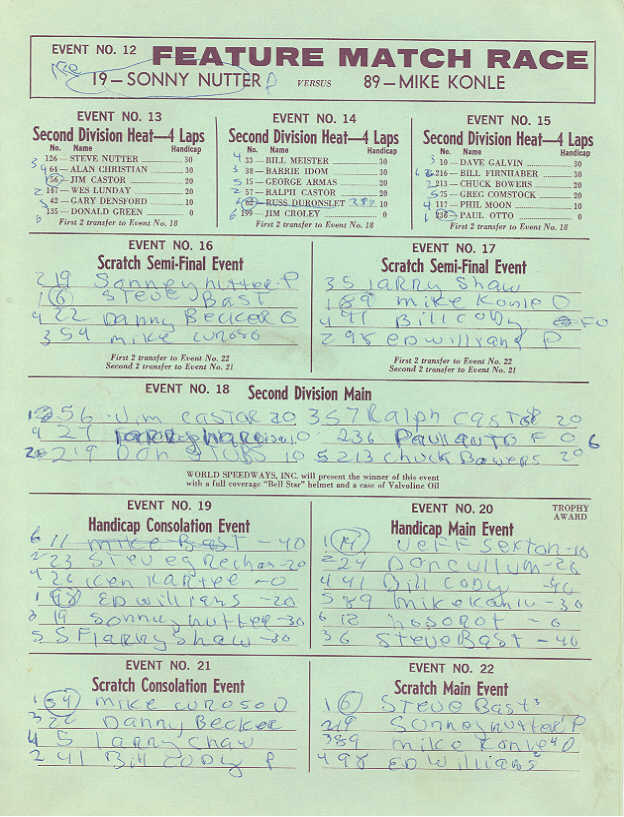 EVENT NO. 12 FEATURE MATCH RACE
19—SONNY NUTTER P VERSUS 89—MIKE KONLE
EVENT NO. 13
Second Division Heat—4 Laps
No. Name Handicap
126— STEVE NUTTER 30
3 64— ALAN CHRISTIAN 30
1 56— JIM CASTOR 20
2 167— WES LUNDAY 20
5 42— GARY DENSFORD 10
6 135— DONALD GREEN 0
First 2 transfer to Event No. 18
EVENT NO. 14
Second Division Heat—4 Laps
No. Name Handicap
4 33— BILL MEISTER 30
3 38— BARRIE IDOM 30
5 15— GEORGE ARMAS 20
2 57— RALPH CASTOR 20
RUSS DURONSLET 10
6 199— JIM CROLEY 0
First 2 transfer to Event No. 18
EVENT NO. 15
Second Division Heat—4 Laps
No. Name Handicap
3 10— DAVE GALVIN 30
216— BILL FIRNHABER 30
2 213— CHUCK BOWERS 20
5 75— GREG COMSTOCK 20
4 117— PHIL MOON 10
1 236— PAUL OTTO 0
First 2 transfer to Event No. 18
EVENT NO. 16
Scratch Semi-Final Event
2 19 Sonney nutter P
1 6 STEVE BAST
4 22 Danny Becker
3 54 mike curoso
First 2 transfer to Event No. 22
Second 2 transfer to Event No. 21
EVENT NO. 17
Scratch Semi-Final Event
3 5 larry Shaw
1 89 mike Konle O
4 41 Bill Cody
2 98 ED willians P
First 2 transfer to Event No. 22
Second 2 transfer to Event No. 21
EVENT NO. 18 Second Division Main
56 Jim castor 20 3 57 Ralph castor 20
4 27 10 236 Paul 0 6
219 Don 10 5 213 chuck Bowers 20
WORLD SPEEDWAYS, INC. will present the winner of this event
with a full coverage "Bell Star" helmet and a case of Valvoline Oil
EVENT NO. 19
Handicap Consolation Event
6 11 mike Bast - 40
23 Steve - 20
4 26 Ken - 0
1 98 ED willians - 20
19 Sonny nutter - 30
5 larry Shaw - 30
EVENT NO. 20 TROPHY
AWARD
Handicap Main Event
1 14 JeFF Sexton - 10
2 24 Don cullum - 20
4 41 Bill Cody - 40
5 89 mike - 30
6 12 - 0
3 6 Steve Bast - 40
EVENT NO. 21
Scratch Consolation Event
1 54 mike curoso O
3 22 Danny Becker
4 5 larry Shaw
2 41 Bill Cody P
EVENT NO. 22
Scratch Main Event
1 6 Steve Bast 3
2 19 Sonney nutter P
3 89 mike Konle 4 O
4 98 ED willians 2